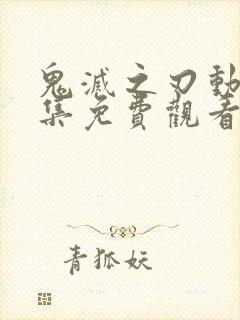 鬼滅之刃動
集免費觀看
青狐妖